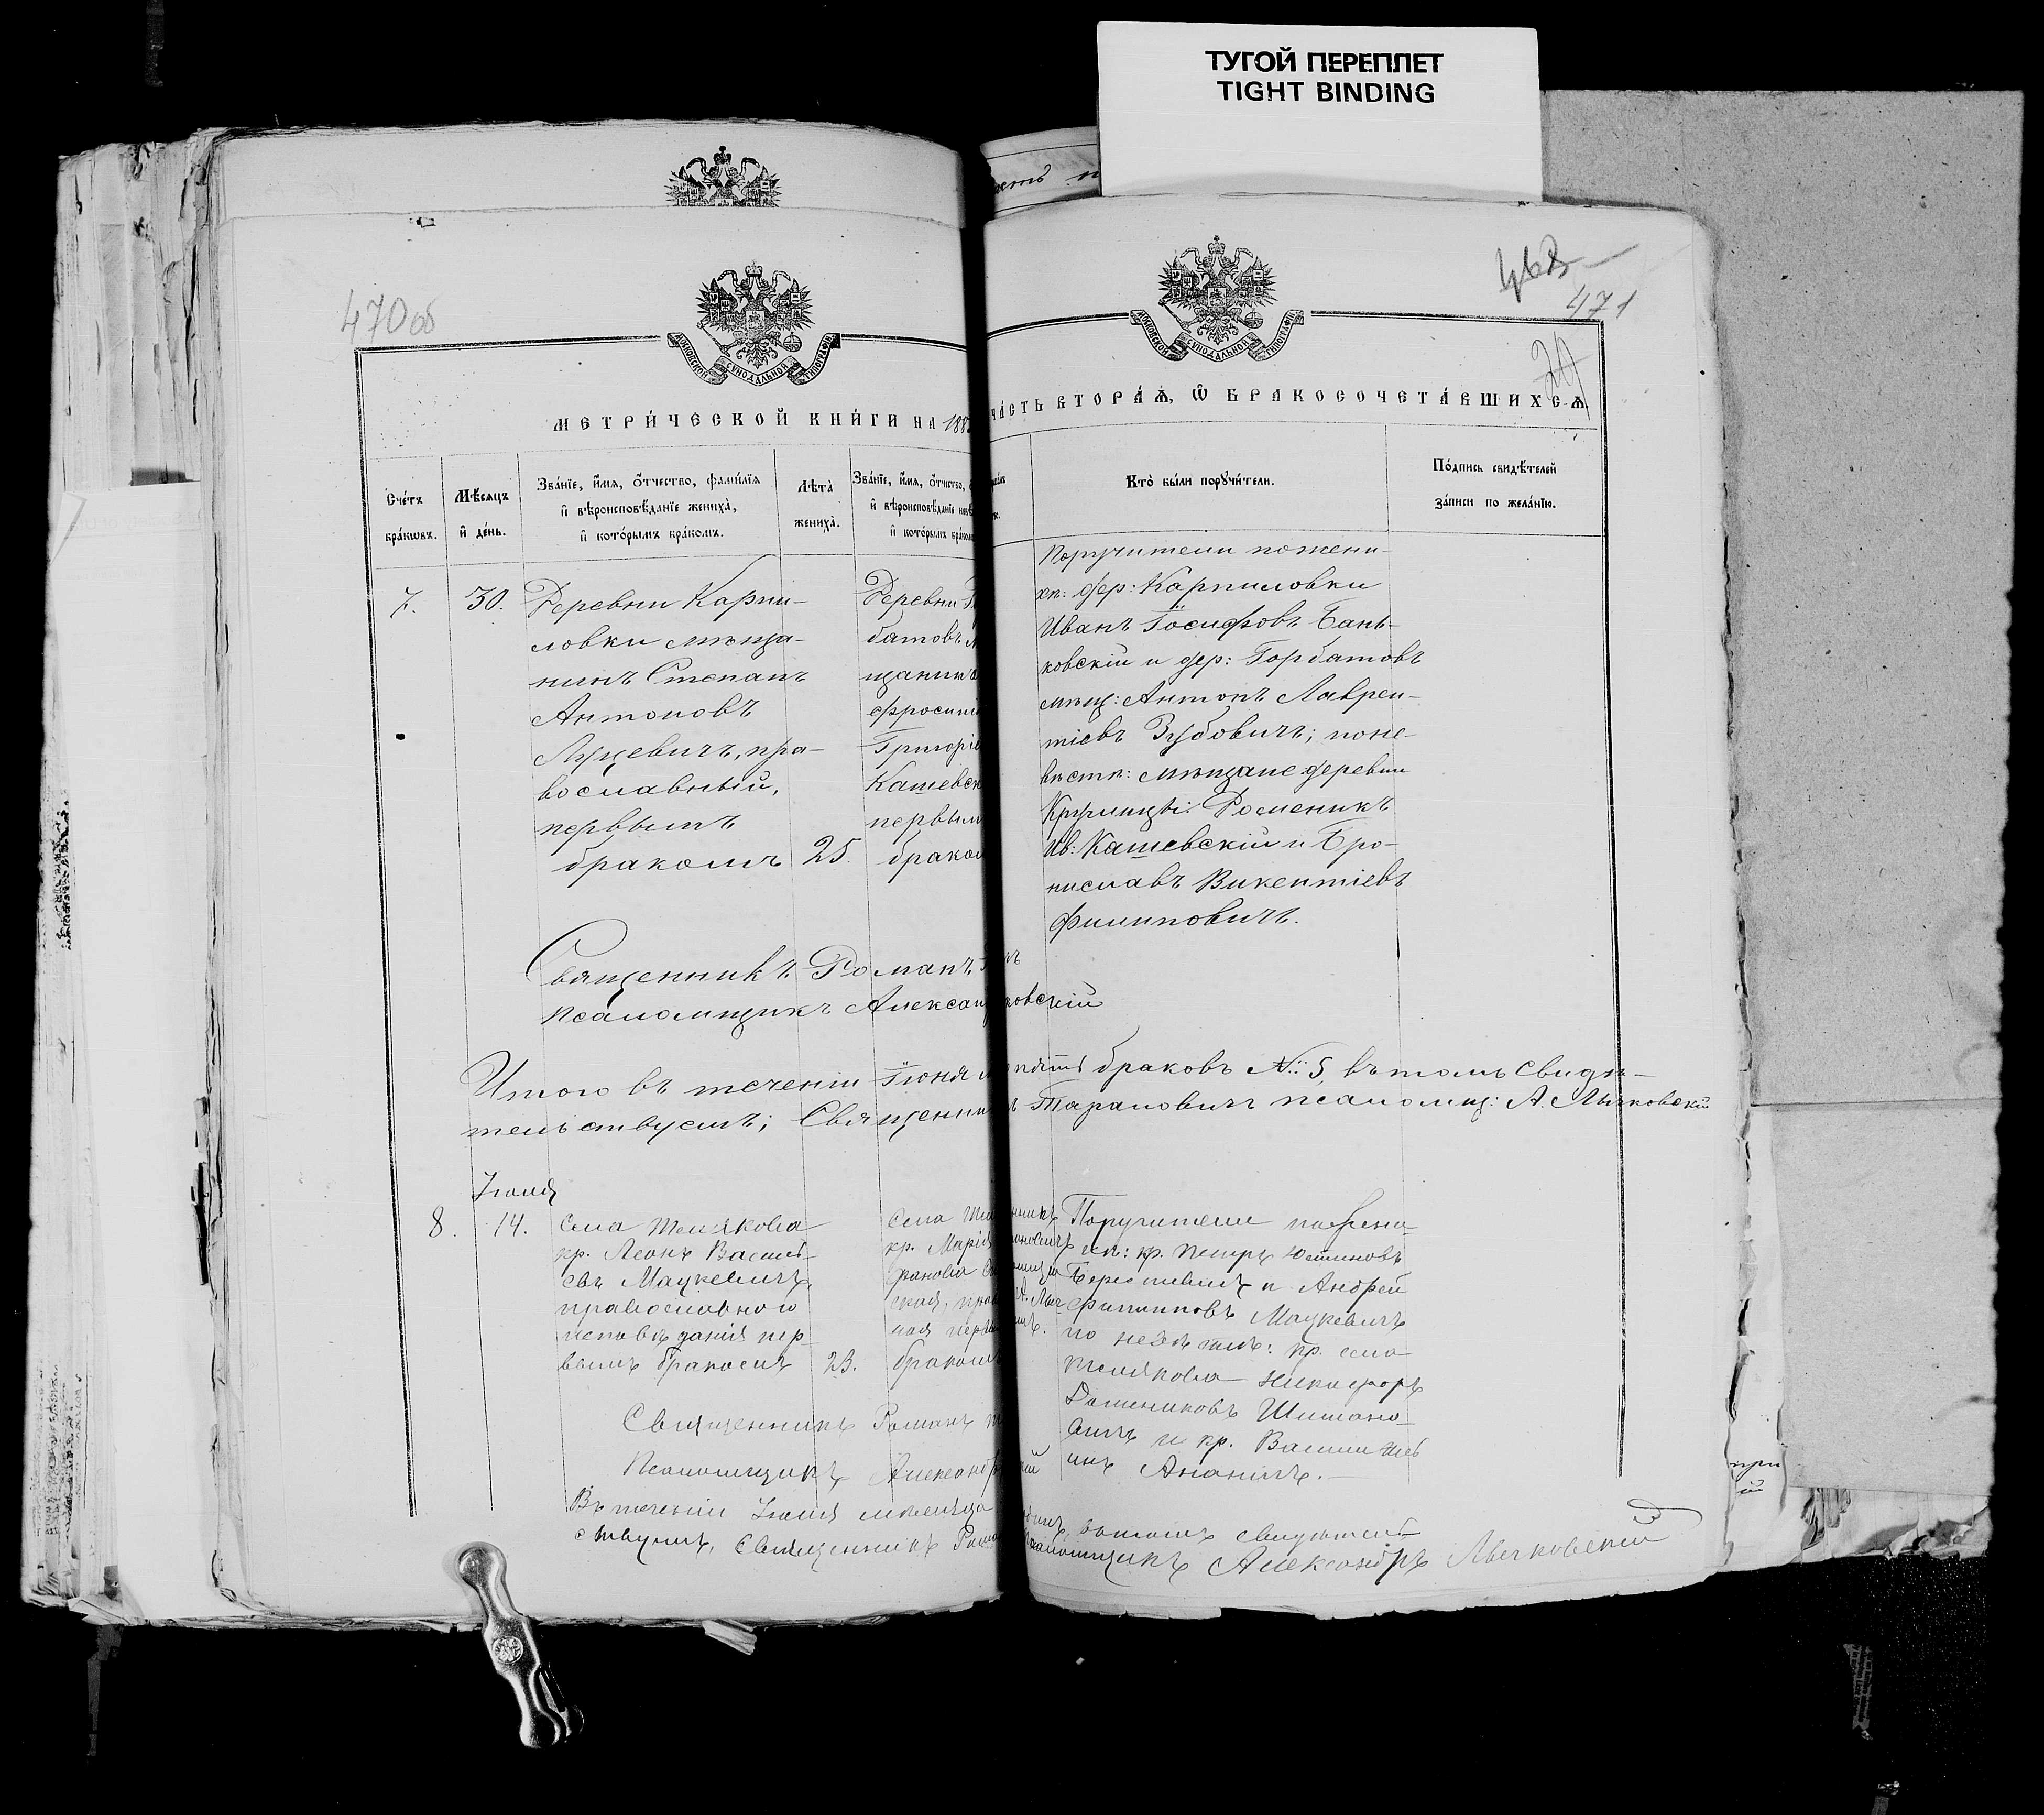 ТУГОЙ ПЕРЕПЛЕТ
TIGHT BINDING
470 об
471
МОСКОВСКОЙ СѴНОДАЛЬНОЙ ТИПОГРАФІИ
МОСКОВСКОЙ СѴНОДАЛЬНОЙ ТИПОГРАФІИ
МЕТРИ́ЧЕСКОЙ КНИ́ГИ НА 188
ЧА́СТЬ ВТОРА́Ѧ, Ѽ БРАКОСОЧЕТА́ВШИХСѦ.
Сче́тъ бра́кѡвъ.
Мѣ́сѧцъ и҆ де́нь.
Зва́нїе, и҆́мѧ, ѻ҆́тчество, фами́лїѧ
и҆ вѣроисповѣ́данїе жениха̀,
и҆ кото́рымъ бра́комъ.
Лѣта̀ жениха̀.
Зва́нїе, и҆́мѧ, ѻ҆́тчество,
и҆ вѣроисповѣ́данїе невѣ
и҆ кото́рымъ браком
Кто̀ бы́ли порꙋчи́тели.
По́дпись свидѣ́телей
за́писи по жела́нїю.
7.
30.
Деревни Карпи-
ловки мѣща-
нинъ Степанъ
Антоновъ
Луцевичъ, пра-
вославный,
первымъ
бракомъ
25.
Деревни
батовъ
щанин
фросин
Григорів
Кашевск
первым
браком
Поручители по жени-
хѣ: дер: Карпиловки
Иванъ Іосифовъ Бань-
ковскій и дер: Горбатовъ
мѣщ: Антонъ Лаврен-
тіевъ Зубовичъ; по не-
вѣстѣ: мѣщане деревни
Круницы: Доменикъ
Ив: Кашевскій и Бро-
ниславъ Викентіевъ
Филиповичъ.
Священникъ Романъ
Псаломщикъ Алексан ковскій
Итого въ теченіи Іюня браковъ №: 5, въ томъ свидѣ-
тельствуемъ; Священни Тарановичъ псаломщ: А. Лычковскій
Іюля
8.
14.
Села Телякова
кр. Леонъ Василь-
евъ Мацкевичъ,
православнаго
исповѣданія пер-
вымъ бракомъ
23.
Села
кр. Марія
ская, прав
ная первы
бракомъ
Поручители по жени-
хѣ: кр. Петръ Юстиновъ
и Андрей
Филипповъ Мацкевичъ
по невѣстѣ: кр. села
Телякова Никифоръ
Домениковъ Шимано-
вичъ и кр.
Священникъ Романъ
Псаломщикъ Александр
Въ теченіи Іюля мѣсяца въ томъ свидѣтель-
ствуемъ, Священникъ Рома Псаломщикъ Александръ Лычковскій